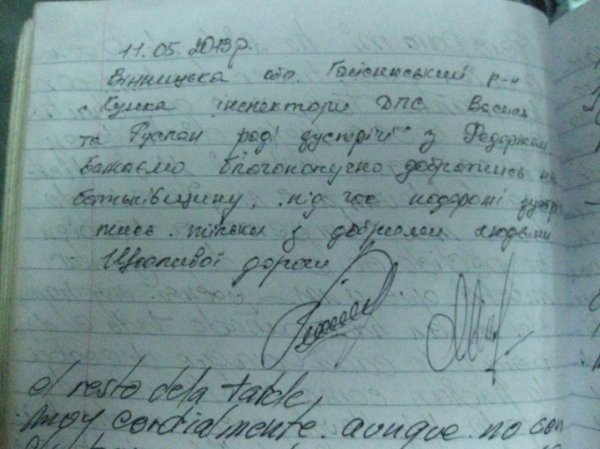 11.05.2013р.
Вінницька обл. Гайсинський р-н
с. Кунка інспектори ДПС Василь
та Руслан раді зустрічі з Федорком
бажаємо благополучно добратись на
батьківщину, під час подорожі зустрі
тись тільки з добрими людьми.
Щасливої дороги
el resto de la tarde,
muy cordialmente. aunque no con